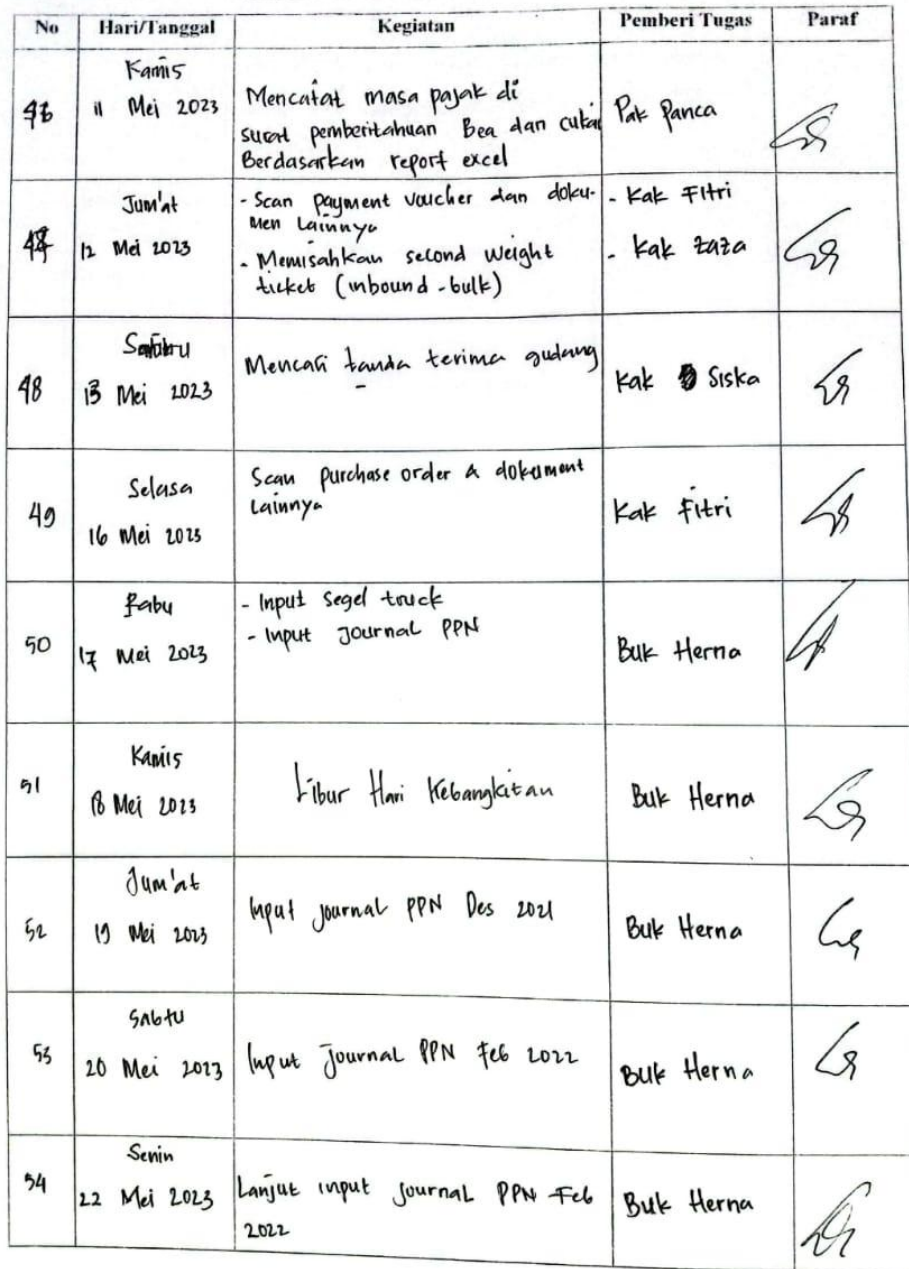 No Hari/Tanggal Kegiatan Pemberi Tugas Paraf
46 Kamis
11 Mei 2023
Mencatat masa pajak di
surat pemberitahuan Bea dan cukai
Berdasarkan report excel
Pak Panca
47 Jum'at
12 Mei 2023
- Scan payment voucher dan doku-
men Lainnya
- Memisahkan second weight
ticket (inbound - bulk)
- Kak Fitri
- Kak Zaza
48 Sabtu
13 Mei 2023
Mencari tanda terima gudang
Kak Siska
49 Selasa
16 Mei 2023
Scan purchase order & dokument
Lainnya
Kak Fitri
50 Rabu
17 Mei 2023
- Input Segel truck
- Input Journal PPN
Buk Herna
51 Kamis
18 Mei 2023
Libur Hari Kebangkitan
Buk Herna
52 Jum'at
19 Mei 2023
Input Journal PPN Des 2021
Buk Herna
53 Sabtu
20 Mei 2023
Input Journal PPN Feb 2022
Buk Herna
54 Senin
22 Mei 2023
Lanjut input Journal PPN Feb
2022
Buk Herna